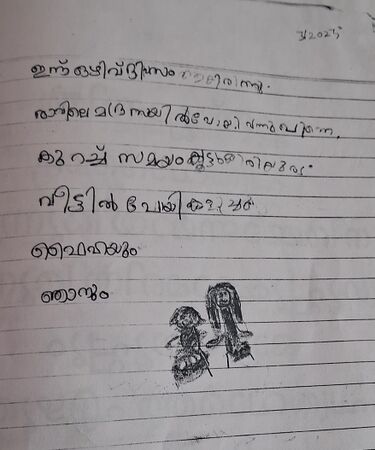 3/2025
ഇന്ന് ഒഴിവ് ദിവസം ആയിരുന്നു.
രാവിലെ മദ്രസയിൽ പോയി വന്നു പിന്നെ,
കുറച്ച് സമയം
വീട്ടിൽ പോയി കളിച്ചു
ഹൈഫയും
ഞാനും